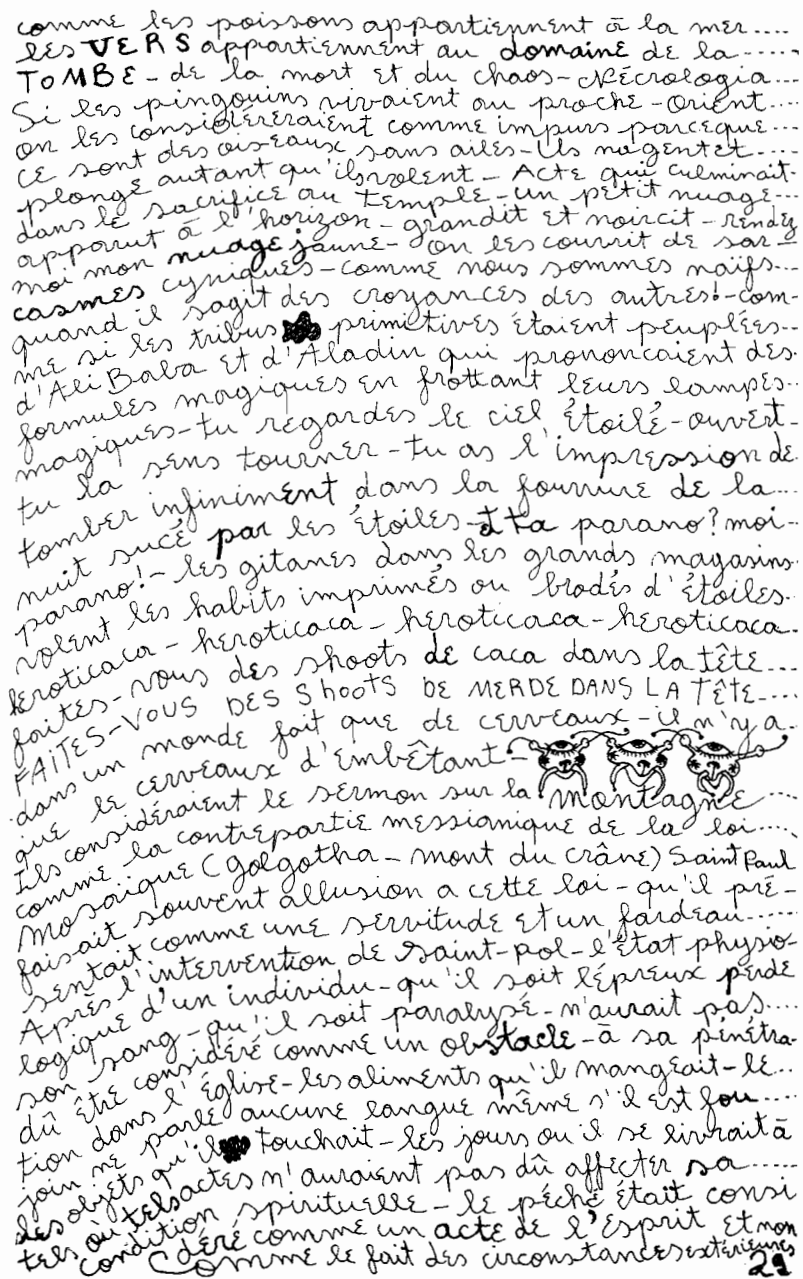 comme les poissons appartiennent à la mer....
les VERS appartiennent au domaine de la.....
TOMBE - de la mort et du chaos - Nécrologia...
Si les pingouins vivaient au proche-Orient....
on les considèreraient comme impurs parceque...
ce sont des oiseaux sans ailes - Ils nagent et....
plonge autant qu'ils volent - Acte qui culminait.
dans le sacrifice au temple - un petit nuage...
apparut à l'horizon - grandit et noircit - rendez
moi mon nuage jaune - on les couvrit de sar-
casmes cyniques - comme nous sommes naïfs...
quand il sagit des croyances des autres! - com-
me si les tribus primitives étaient peuplées..
d'Ali Baba et d'Aladin qui prononcaient des.
formules magiques en frottant leurs lampes..
magiques - tu regardes le ciel étoilé - ouvert.
tu la sens tourner - tu as l'impression de.
tomber infiniment dans la fourrure de la...
nuit sucé par les étoiles - Ita parano? moi..
parano! - les gitanes dans les grands magasins.
volent les habits imprimés ou brodés d'étoiles.
heroticaca - heroticaca - heroticaca - heroticaca.
faites-vous des shoots de caca dans la tête...
FAITES-VOUS DES Shoots DE MERDE DANS LA TÊTE....
dans un monde fait que de cerveaux - il n'y a.
que le cerveaux d'embêtant -
Ils considéraient le sermon sur la montagne.....
comme la contrepartie messianique de la loi....
mosaïque (golgotha - mont du crâne) Saint Paul
faisait souvent allusion a cette loi - qu'il pré-
sentait comme une servitude et un fardeau.....
Après l'intervention de Saint-pol - l'état physio-
logique d'un individu - qu'il soit lépreux perde
son sang - qu'il soit paralysé - n'aurait pas....
dû être considéré comme un obstacle - à sa pénétra-
tion dans l'église - les aliments qu'il mangeait - le..
join ne parle aucune langue même s'il est fou....
des objets qu'il touchait - les jours ou il se livrait à
tels où tels actes n'auraient pas dû affecter sa.....
condition spirituelle - le péché était consi
déré comme un acte de l'Esprit Et non
Comme le fait des circonstances extérieures
29